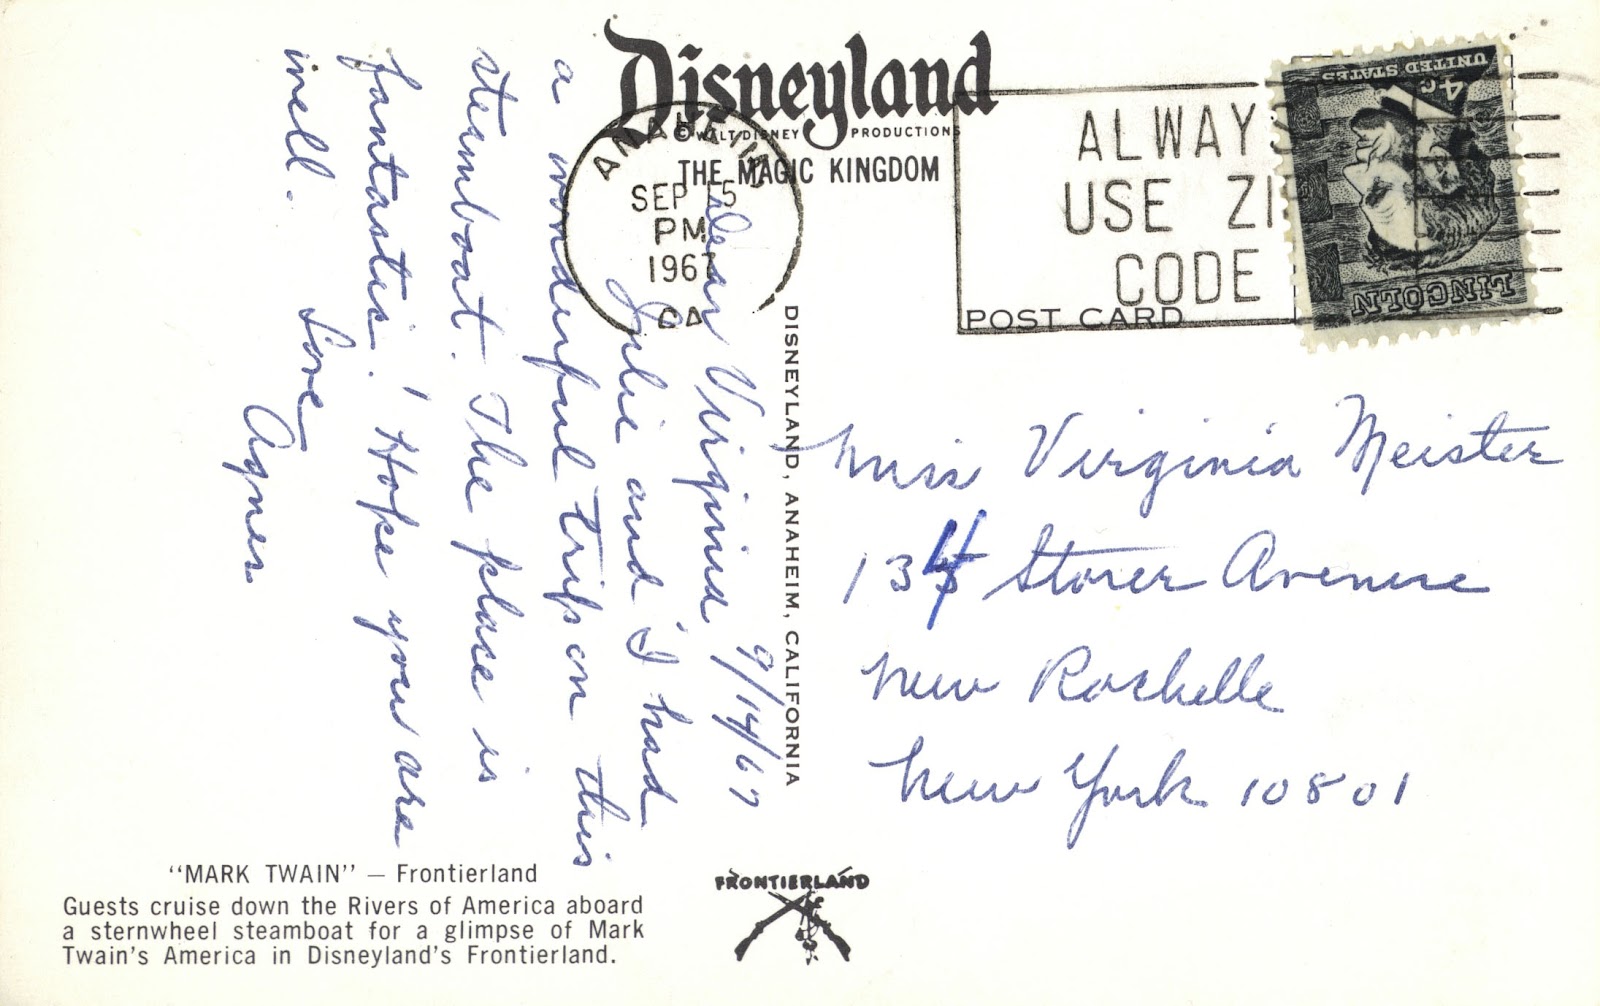 Disneyland
© WALT DISNEY PRODUCTIONS
THE MAGIC KINGDOM
ANAHEIM
SEP 15
PM
1967
CA
ALWAYS
USE ZI
CODE
UNITED STATES
4c
LINCOLN
POST CARD
DISNEYLAND, ANAHEIM, CALIFORNIA
9/14/67
Dear Virginia
Julie and I had
a wonderful trip on this
sternboat. The place is
fantastic! Hope you are
well. Love
Agnes
Miss Virginia Meister
134 Storer Avenue
New Rochelle
New York 10801
"MARK TWAIN" — Frontierland
Guests cruise down the Rivers of America aboard
a sternwheel steamboat for a glimpse of Mark
Twain's America in Disneyland's Frontierland.
FRONTIERLAND